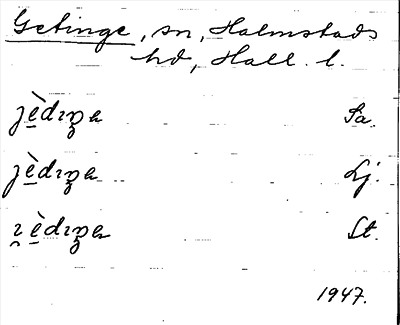 Getinge, sn, Halmstads
hd, Hall. l.
jè̠dıŋ̠ɐ Sa.
jè̠dıŋ̠ɐ Lj.
ı̯è̠dıŋ̠ɐ St.
1947.